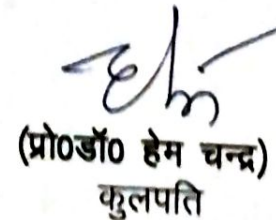 (प्रो०डॉ० हेम चन्द्र)
कुलपति